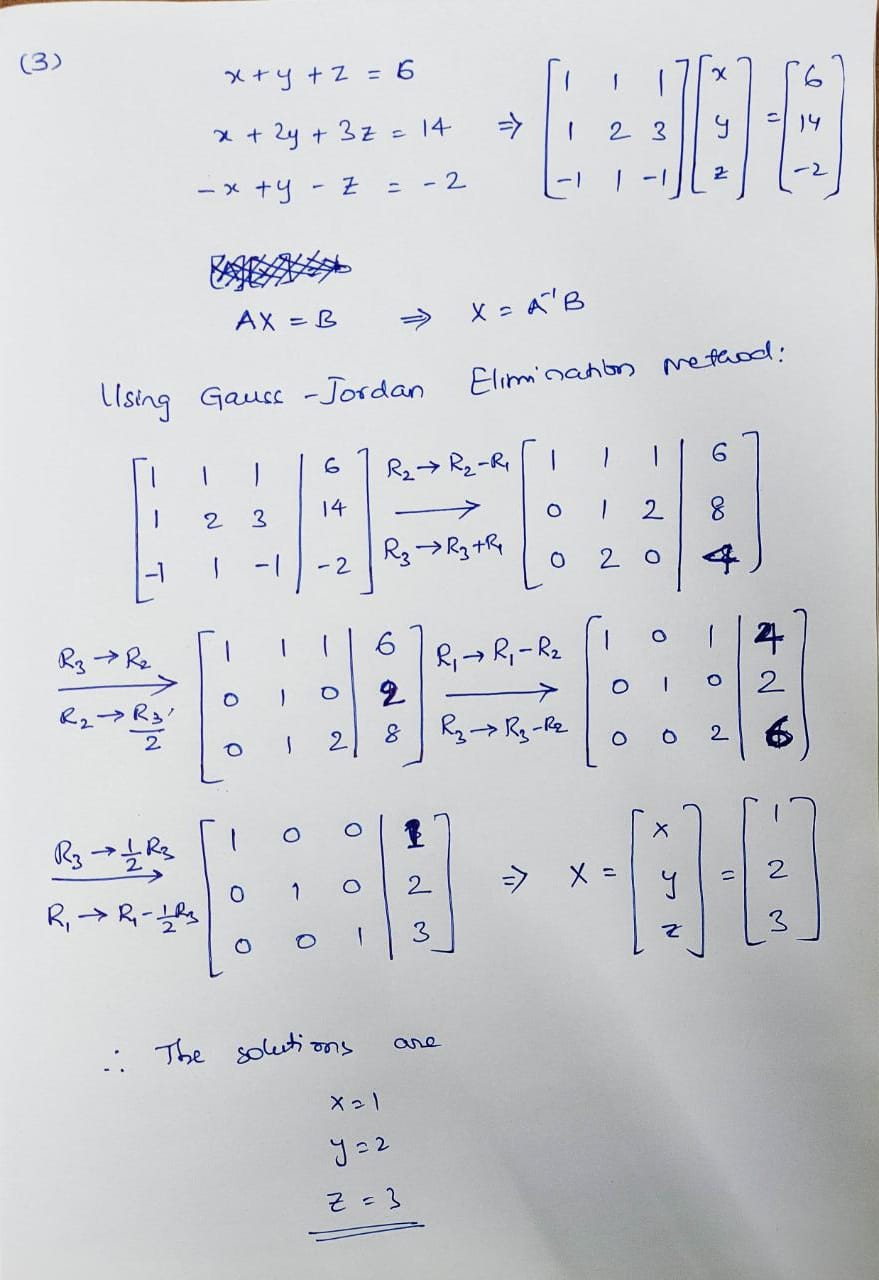 (3)
x + y + z = 6 ⇒ [1 1 1; 1 2 3; -1 1 -1] [x; y; z] = [6; 14; -2]
x + 2y + 3z = 14
-x + y - z = -2
AX = B ⇒ X = A⁻¹B
Using Gauss - Jordan Elimination method:
[1 1 1 | 6; 1 2 3 | 14; -1 1 -1 | -2] R₂ → R₂-R₁ R₃ → R₃+R₁ [1 1 1 | 6; 0 1 2 | 8; 0 2 0 | 4]
R₃ → R₂ R₂ → R₃'/2 [1 1 1 | 6; 0 1 0 | 2; 0 1 2 | 8] R₁ → R₁-R₂ R₃ → R₃-R₂ [1 0 1 | 4; 0 1 0 | 2; 0 0 2 | 6]
R₃ → 1/2 R₃ R₁ → R₁-1/2 R₃ [1 0 0 | 1; 0 1 0 | 2; 0 0 1 | 3] ⇒ X = [x; y; z] = [1; 2; 3]
∴ The solutions are
x = 1
y = 2
z = 3